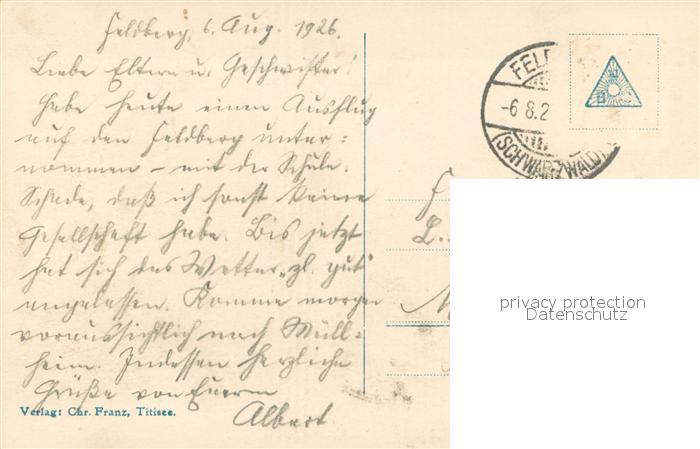 Feldberg, 6. Aug. 1926.
Liebe Eltern u. Geschwister!
Habe heute einen Ausflug
auf den Feldberg unter=
nommen – mit der Schule.
Schade, daß ich sonst keine
Gesellschaft habe. Bis jetzt
hat sich das Wetter „zl. gut"
angelassen. Komme morgen
voraussichtlich nach Müll=
heim. Indessen herzliche
Grüße von Euerm
Albert.
Verlag: Chr. Franz, Titisee.
FELD
-6 8.2
(SCHWARZWALD)
F
L.
M
privacy protection
Datenschutz